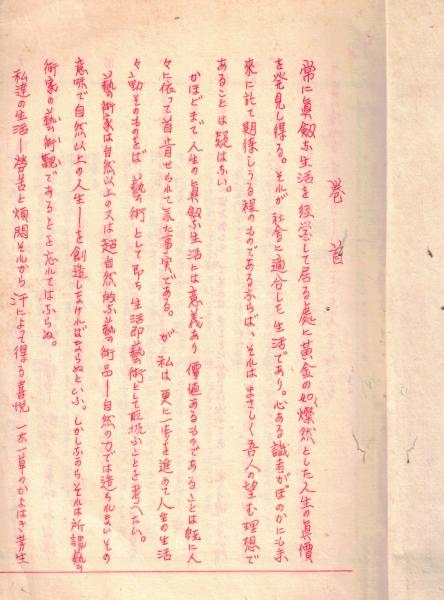 巻首
常に眞劔な生活を経営して居る處に黄金の如く燦然とした人生の眞價
を発見し得る。それが社会に適合した生活であり。心ある識者がほのかにも未
来に託て期待しうる程のものであるならば、それはまさしく吾人の望む理想で
あることは疑はない。
かほどまで人生の眞劔な生活には意義あり價値あるものであることは既に人
々に依って首肯せられて来た事実である。が私は更に一歩を進めて人生の生活
々動そのものをば藝術として即ち生活即藝術として取扱ふことを考へたい。
藝術家は自然以上の又は超自然的な藝術品ー自然の力では造られないその
意味で自然以上の人生ーを創造しなければならぬといふ。しかしながらそれは所謂藝
術家の藝術観であることを忘れてはならぬ。
私達の生活ー労苦と煩悶それから汗によって得る喜悦 一木一草のかよはき芽生